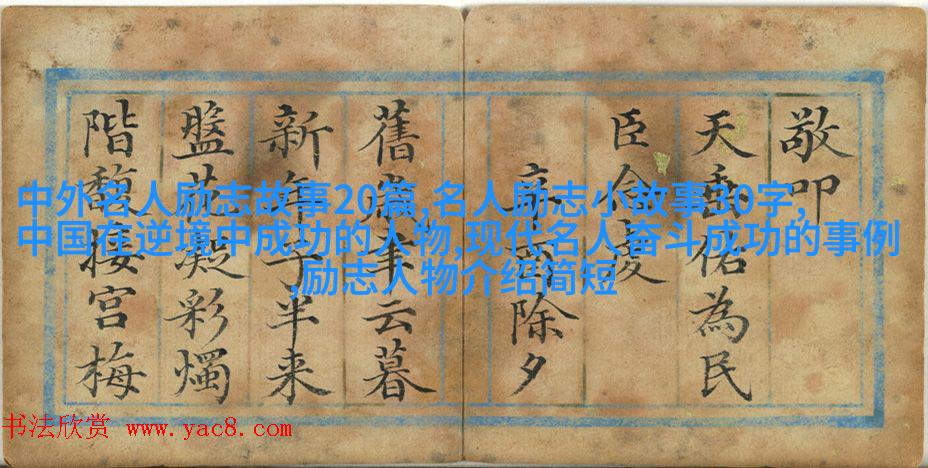 敬叩
天佑為民
臣虔
除夕
舊云暮
新年子半来
盤花凝彩燭
階馥接宮梅
中外名人励志故事20篇,名人励志小故事30字,
中国在逆境中成功的人物,现代名人奋斗成功的事例
,励志人物介绍简短
书法欣赏 www.yac8.com